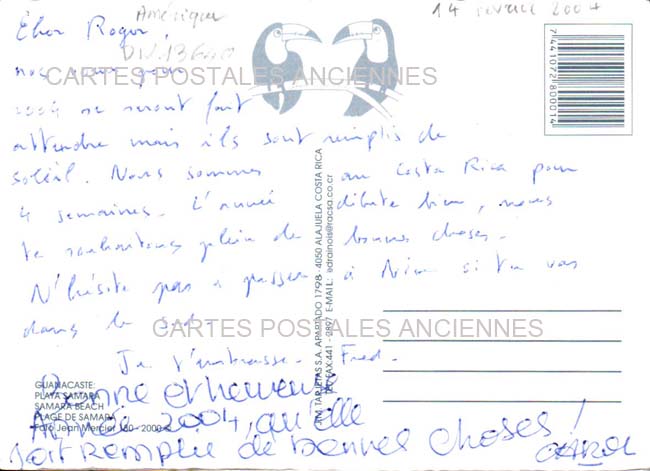 Amérique
14 février 2004
Cher Roger,
DIV.13600
nos vœux pour
CARTES POSTALES ANCIENNES
2004 se seront fait
attendre mais ils sont remplis de
soleil. Nous sommes au Costa Rica pour
4 semaines. L'année débute bien, nous
te souhaitons plein de bonnes choses.
N'hésite pas à passer à Nîmes si tu vas
dans le sud.
CARTES POSTALES ANCIENNES
Je t'embrasse. Fred.
Bonne et heureuse
Année 2004, qu'elle
soit remplie de bonnes choses !
CAROL
GUANACASTE:
PLAYA SAMARA
SAMARA BEACH
PLAGE DE SAMARA
Foto Jean Mercier 180 - 2000
TARJETAS S.A. APARTADO 1798 - 4050 ALAJUELA COSTA RICA
FAX:441 - 2897 E-MAIL: edrainois@racsa.co.cr
7441072800014